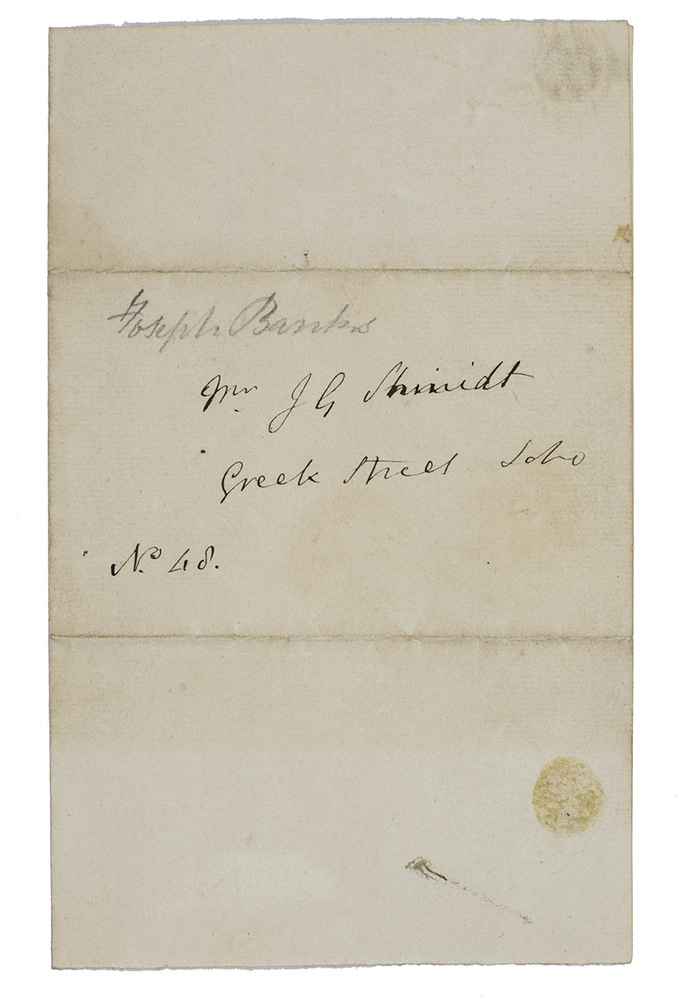 Joseph Banks
Mr J G Shmidt
Greek Street Soho
No. 48.